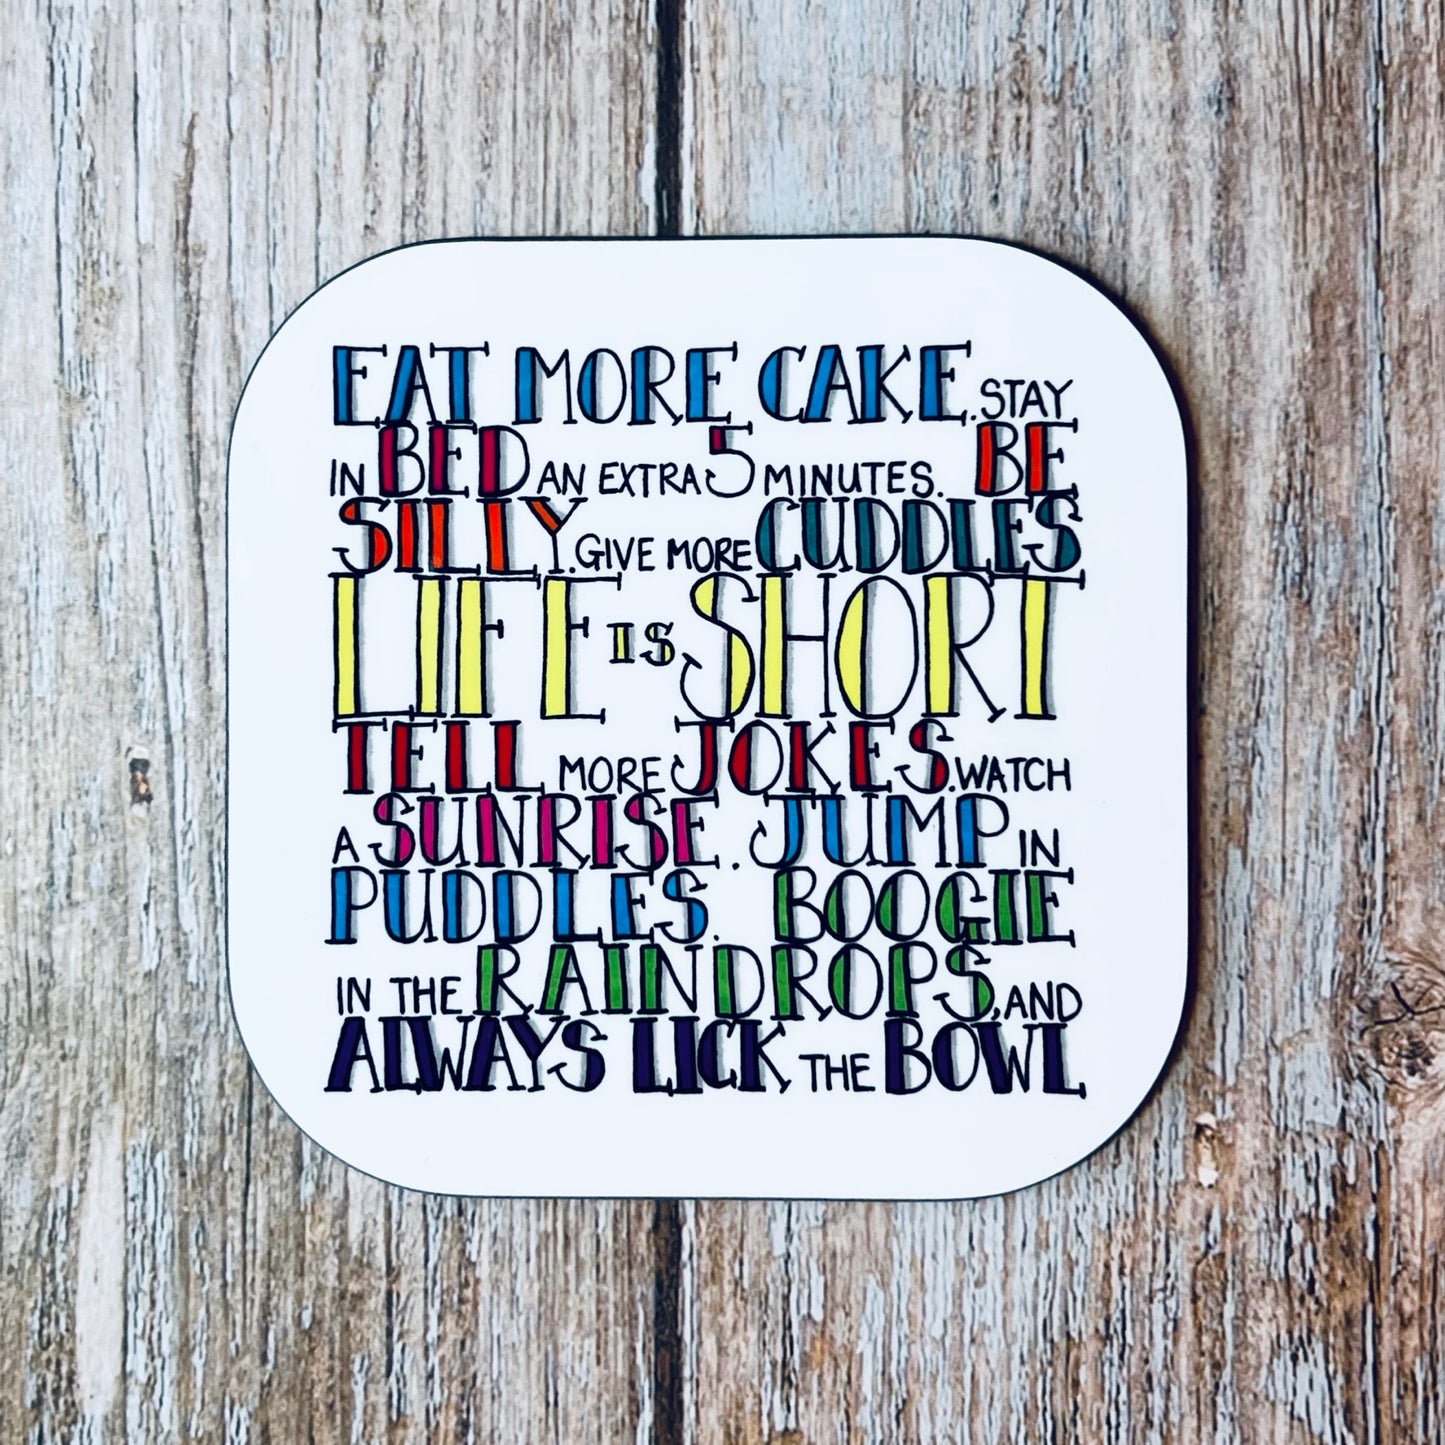 EAT MORE CAKE. STAY
IN BED AN EXTRA 5 MINUTES. BE
SILLY. GIVE MORE CUDDLES
LIFE IS SHORT
TELL MORE JOKES. WATCH
A SUNRISE. JUMP IN
PUDDLES. BOOGIE
IN THE RAINDROPS, AND
ALWAYS LICK THE BOWL